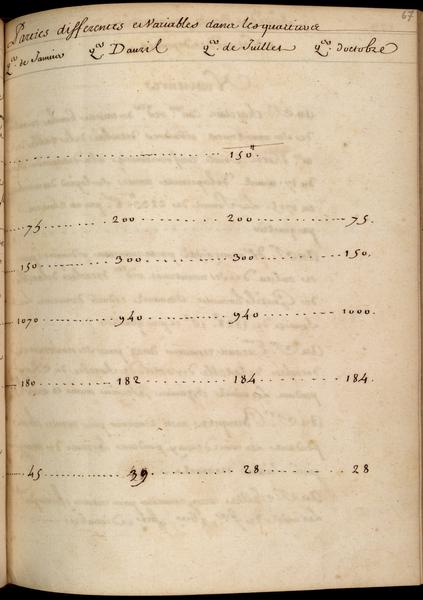 67
Parties differentes et Variables dans les quartiers
qer. de Janvier qer. D'avril qer. de Juillet qer. d'octobre
150ʰ.
75 200 200 75.
150 300 300 150.
1070 940 940 1000.
180 182 184 184.
45 39 28 28